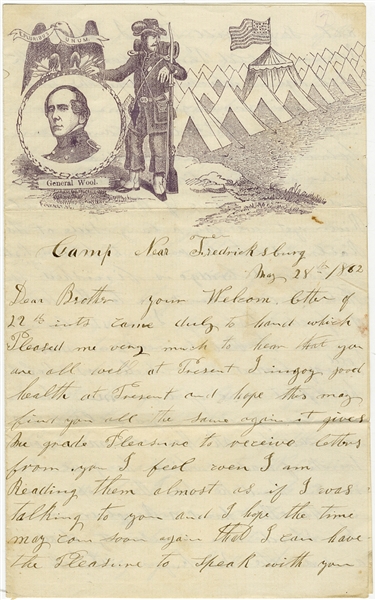 E PLURIBUS UNUM
General Wool.
Camp Near Fredricksburg
May 28th 1862
Dear Brother your Welcom letter of
22th ints came duly to hand which
Pleased me very much to hear that you
are all well at Present I injoy good
health at Present and hope this may
find you all the same again it gives
me grade Pleasure to receive letters
from you I feel when I am
Reading them almost as if I was
talking to you and I hope the time
may com soon again that I can have
the Pleasure to speak with you